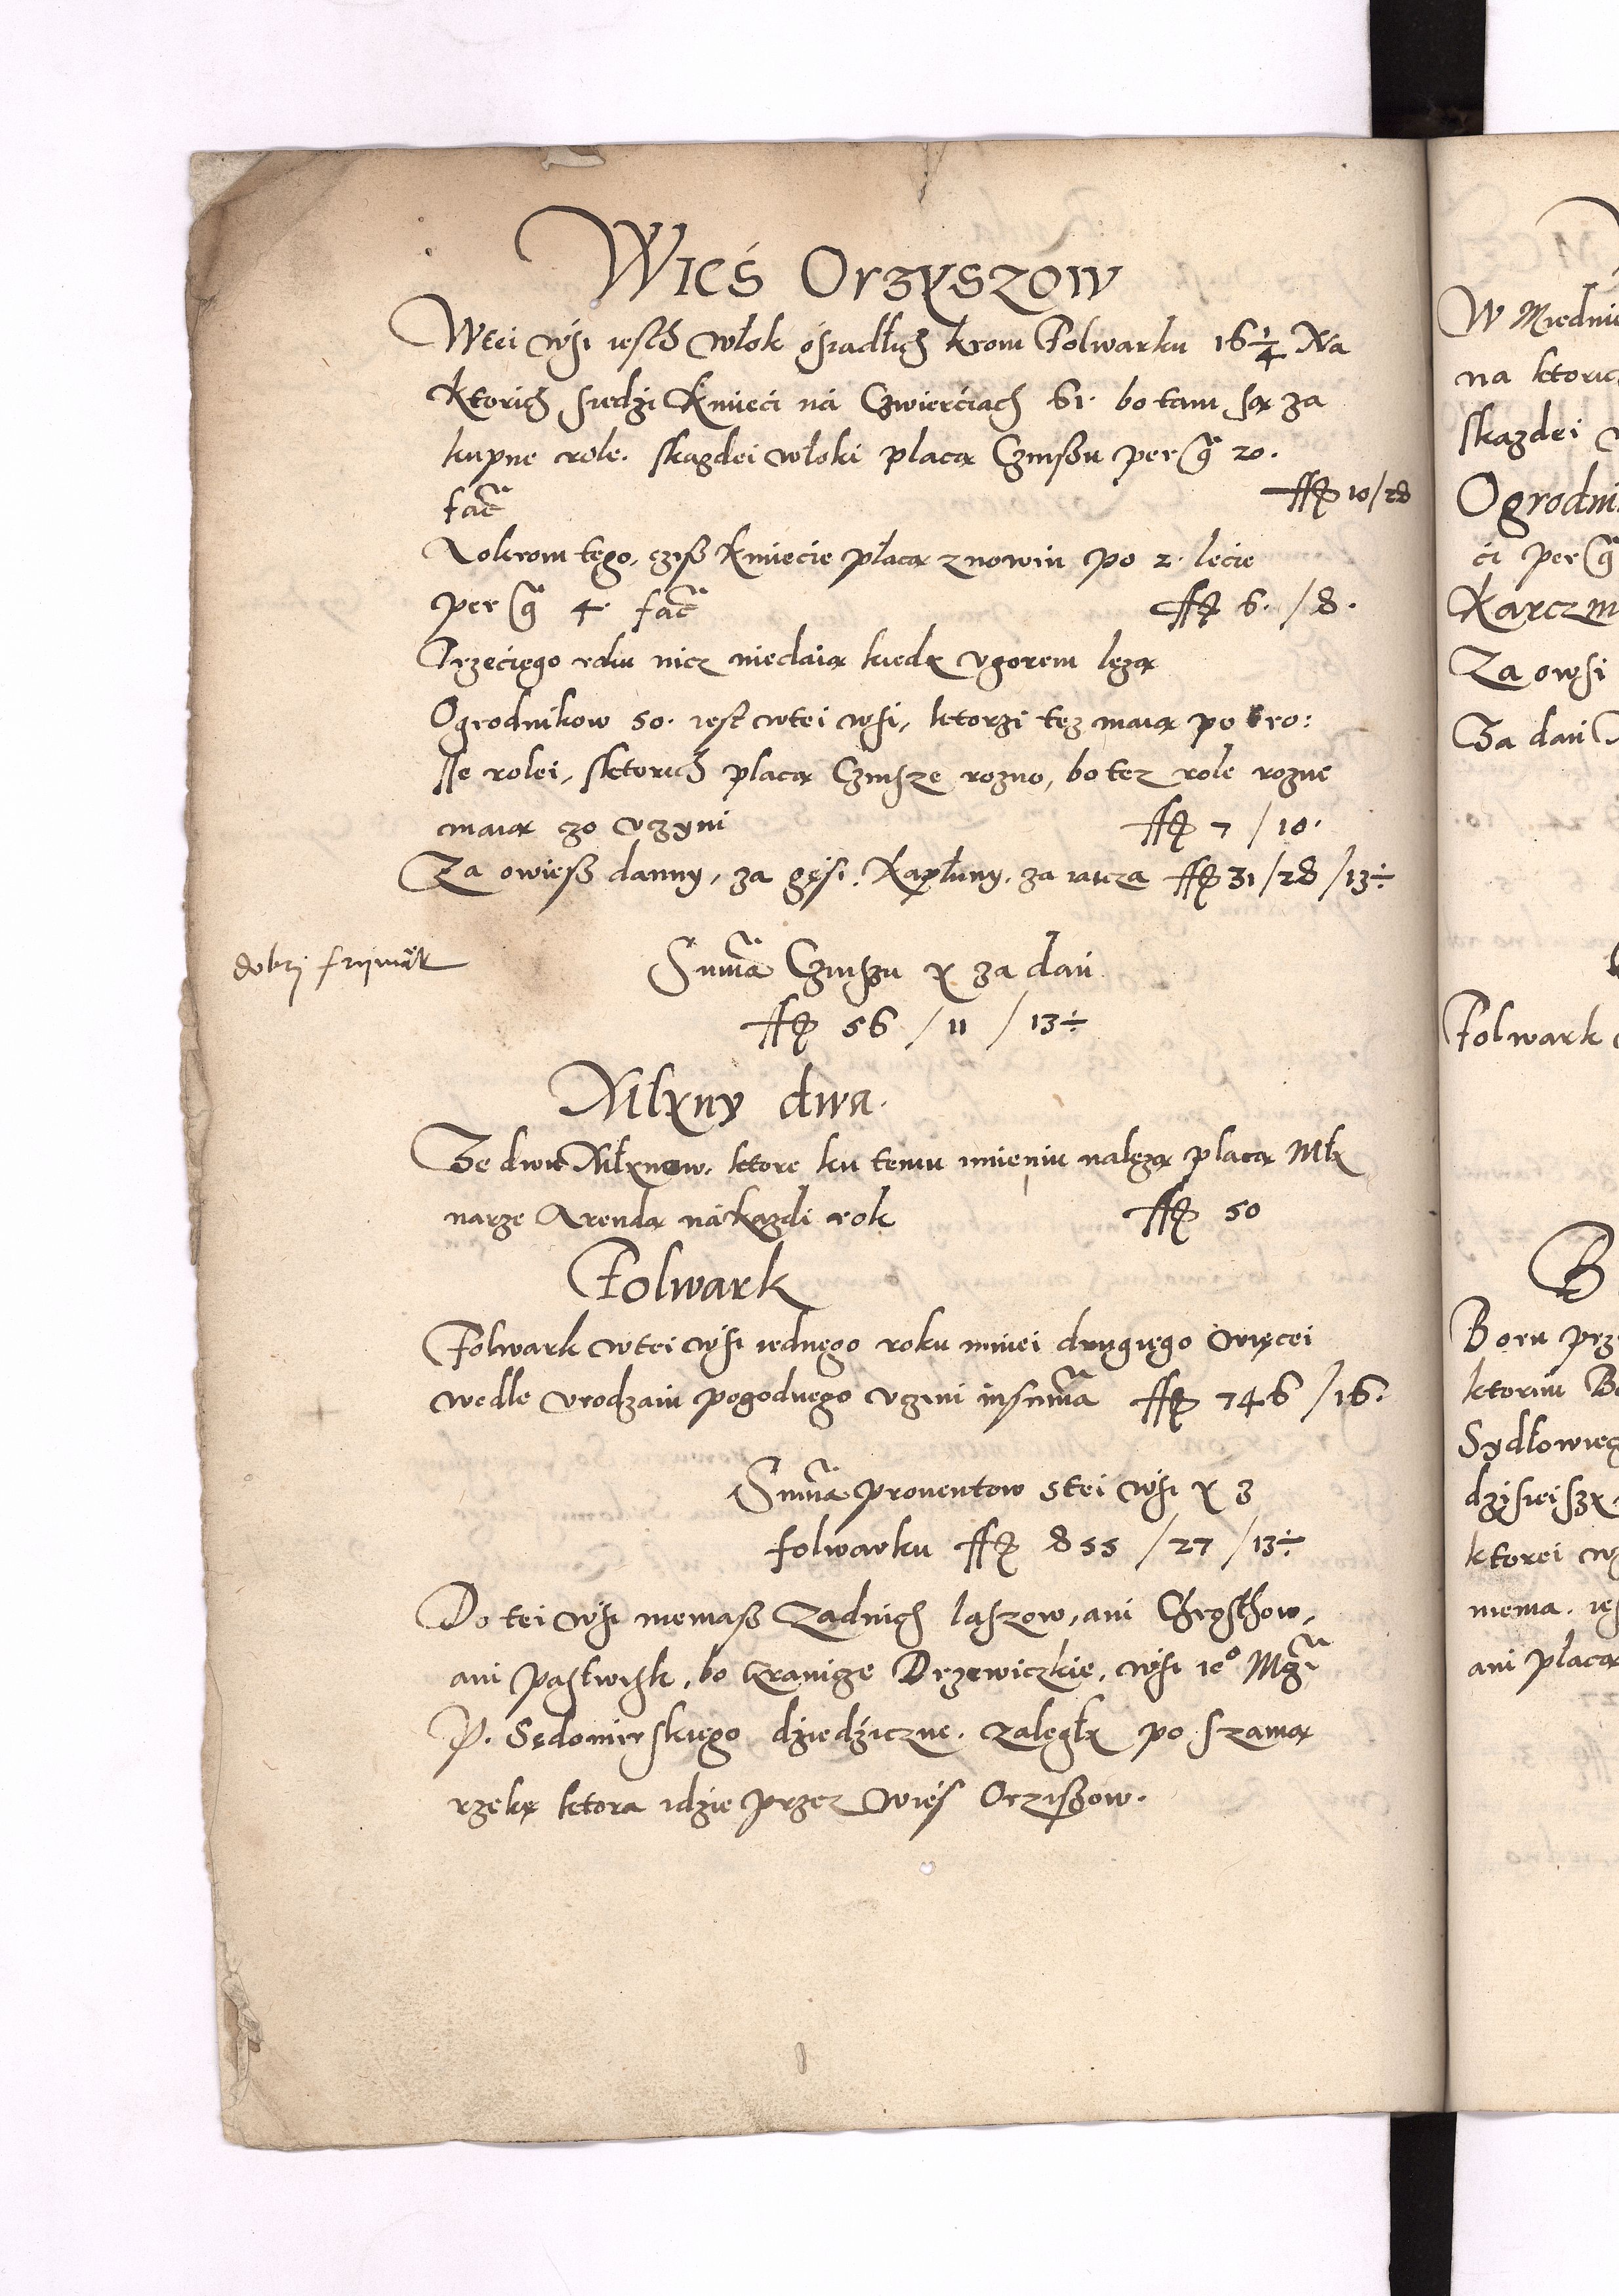 Wieś Orzyszow
Wtei wśi iesth włok ośiadłich krom Folwarku 16 1/4 Na
Ktorich siedzi Kmieci ná Czwierćiach 61. bo tam są za
kupne role. skazdei włoki placą Czinszu per gr 20.
facit ff 10/28
A okrom tego, cziß Kmiecie płacą z nowin po 2. lecie
per gr 4. facit ff 6. /8.
Trzeciego roku nicz niedaią kiedy vgorem lężą
Ogrodnikow 50. iest wtei wśi, ktorzi tęz maią po tro:
sse rolei, sktorich płacą Czinsze rozno, bo tez role rozne
maią czo vczyni ff 7 / 10.
Za owięß danny, za gęśi, Kapłuny, za iaicza ff 31/28/13÷
dobrj frijmark
Suma Czinszu y za dań
ff 56 / 11 / 13÷
Młyny dwa.
Ze dwu Młynow, ktore ku temu imieniu nalęzą płacą Mły
narze Arendą ná kazdi rok ff 50
Folwark
Folwark wtei wśi iednego roku mniei drugięgo więcei
wedle vrodzaiu pogodnego vczini insuma ff 746 /16.
Suma prouentow stei wśi y z
folwarku ff 855 /27 /13÷
Do tei wśi niemaß Zadnich laszow, ani Chrosthow,
ani pastwisk, bo Granicze Drzewiczkie, wśi ie⁰ Mczi
P. Sędomirskięgo dziedźiczne. Zalęgły po szamą
rzeky ktora idzie przez wieś Orzißow.
W Miedni
na ktorich
skazdei
Ogrodni
ci per gr
Karczm
Za owśi
Za dań
Folwark
B
Boru prz
ktorim Bo
Sydłowieg
dziśieiszy
ktorei w
niema. ieś
ani płacą